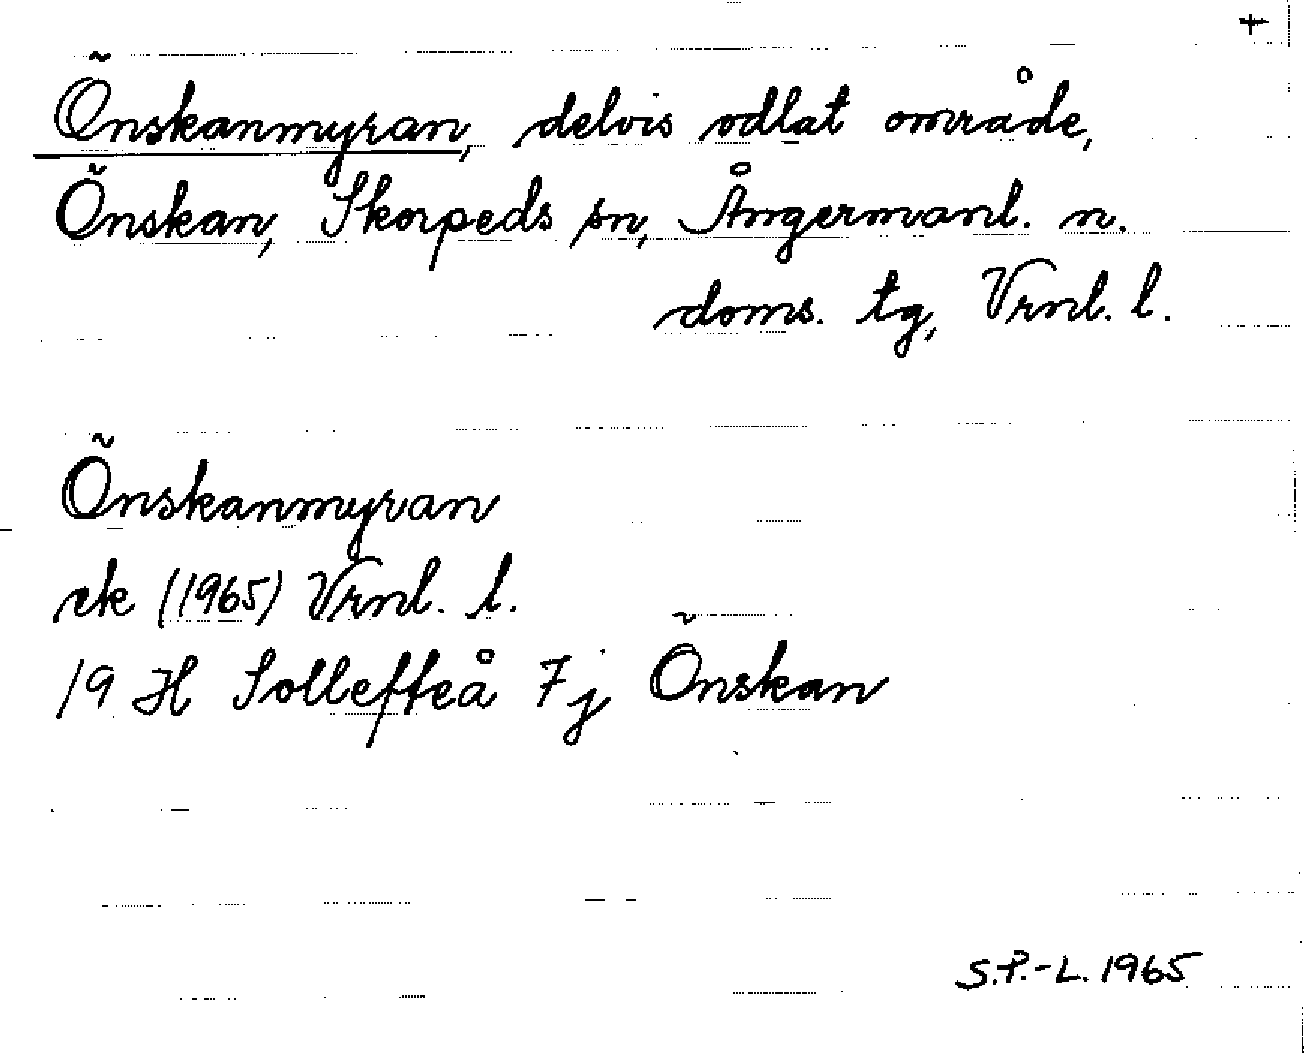 +
Önskanmyran, delvis odlat område,
Önskan, Skorpeds sn, Ångermanl. n.
doms. tg, Vrnl. l.
Önskanmyran
ek (1965) Vrnl. l.
19 H Sollefteå 7j Önskan
S.P.-L. 1965